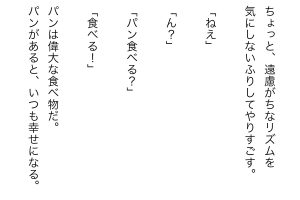 ちょっと、遠慮がちなリズムを
気にしないふりしてやりすごす。
「ねえ」
「ん？」
「パン食べる？」
「食べる！」
パンは偉大な食べ物だ。
パンがあると、いつも幸せになる。